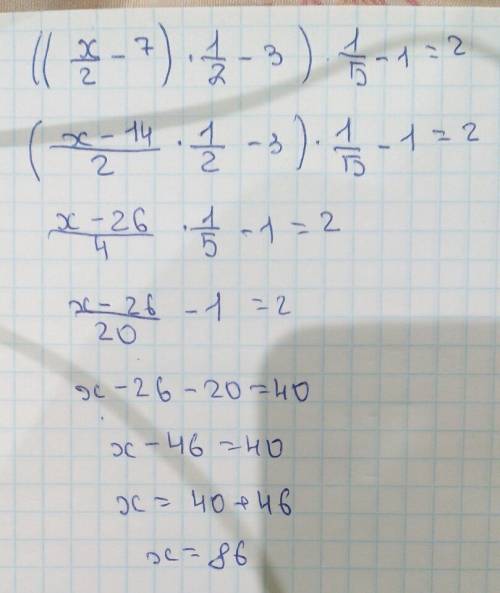 ((x/2 - 7) · 1/2 - 3) · 1/5 - 1 = 2
(x - 14/2 · 1/2 - 3) · 1/5 - 1 = 2
x - 26/4 · 1/5 - 1 = 2
x - 26/20 - 1 = 2
x - 26 - 20 = 40
x - 46 = 40
x = 40 + 46
x = 86